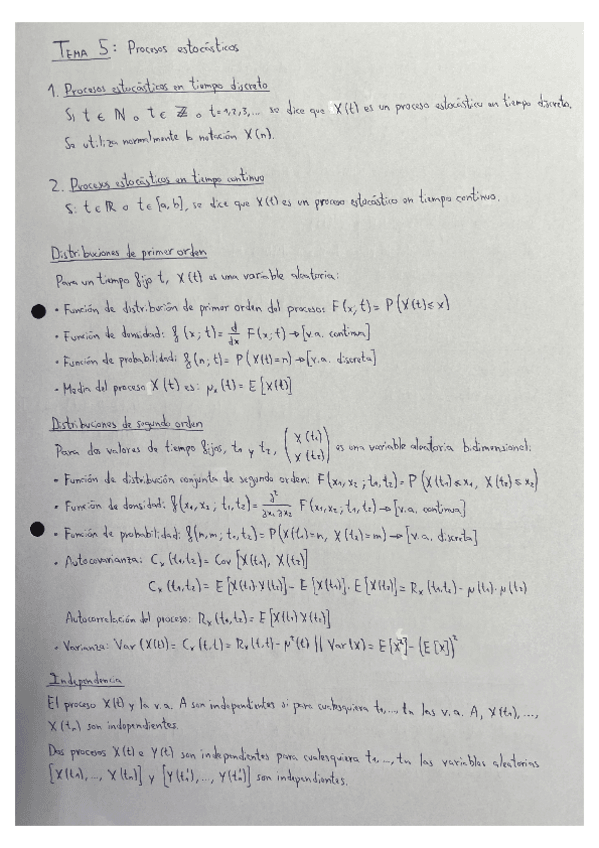 TEMA 5: Procesos estocásticos
1. Procesos estocásticos en tiempo discreto
Si t ∈ ℕ o t ∈ ℤ o t=1,2,3,... se dice que X(t) es un proceso estocástico en tiempo discreto.
Se utiliza normalmente la notación X(n).
2. Procesos estocásticos en tiempo continuo
Si t ∈ ℝ o t ∈ [a,b], se dice que X(t) es un proceso estocástico en tiempo continuo.
Distribuciones de primer orden
Para un tiempo fijo t, X(t) es una variable aleatoria:
• Función de distribución de primer orden del proceso: F(x,t) = P(X(t) ≤ x)
• Función de densidad: f(x;t) = d/dx F(x;t) → [v.a. continua]
• Función de probabilidad: f(n;t) = P(X(t)=n) → [v.a. discreta]
• Media del proceso X(t) es: μx(t) = E[X(t)]
Distribuciones de segundo orden
Para dos valores de tiempo fijos, t₁ y t₂, (X(t₁) X(t₂)) es una variable aleatoria bidimensional:
• Función de distribución conjunta de segundo orden: F(x₁,x₂; t₁,t₂) = P(X(t₁) ≤ x₁, X(t₂) ≤ x₂)
• Función de densidad: f(x₁,x₂; t₁,t₂) = ∂²/∂x₁∂x₂ F(x₁,x₂; t₁,t₂) → [v.a. continua]
• Función de probabilidad: f(n,m; t₁,t₂) = P(X(t₁)=n, X(t₂)=m) → [v.a. discreta]
• Autocovarianza: Cx(t₁,t₂) = Cov[X(t₁), X(t₂)]
Cx(t₁,t₂) = E[X(t₁)·X(t₂)] - E[X(t₁)]·E[X(t₂)] = Rx(t₁,t₂) - μ(t₁)·μ(t₂)
Autocorrelación del proceso: Rx(t₁,t₂) = E[X(t₁)X(t₂)]
• Varianza: Var(X(t)) = Cx(t,t) = Rx(t,t) - μ²(t) || Var(x) = E[x²] - (E[x])²
Independencia
El proceso X(t) y la v.a. A son independientes si para cualesquiera t₁,...,tn las v.a. A, X(t₁),...,
X(tn) son independientes.
Dos procesos X(t) e Y(t) son independientes para cualesquiera t₁,...,tn las variables aleatorias
[X(t₁),..., X(tn)] y [Y(t₁'),..., Y(tn')] son independientes.